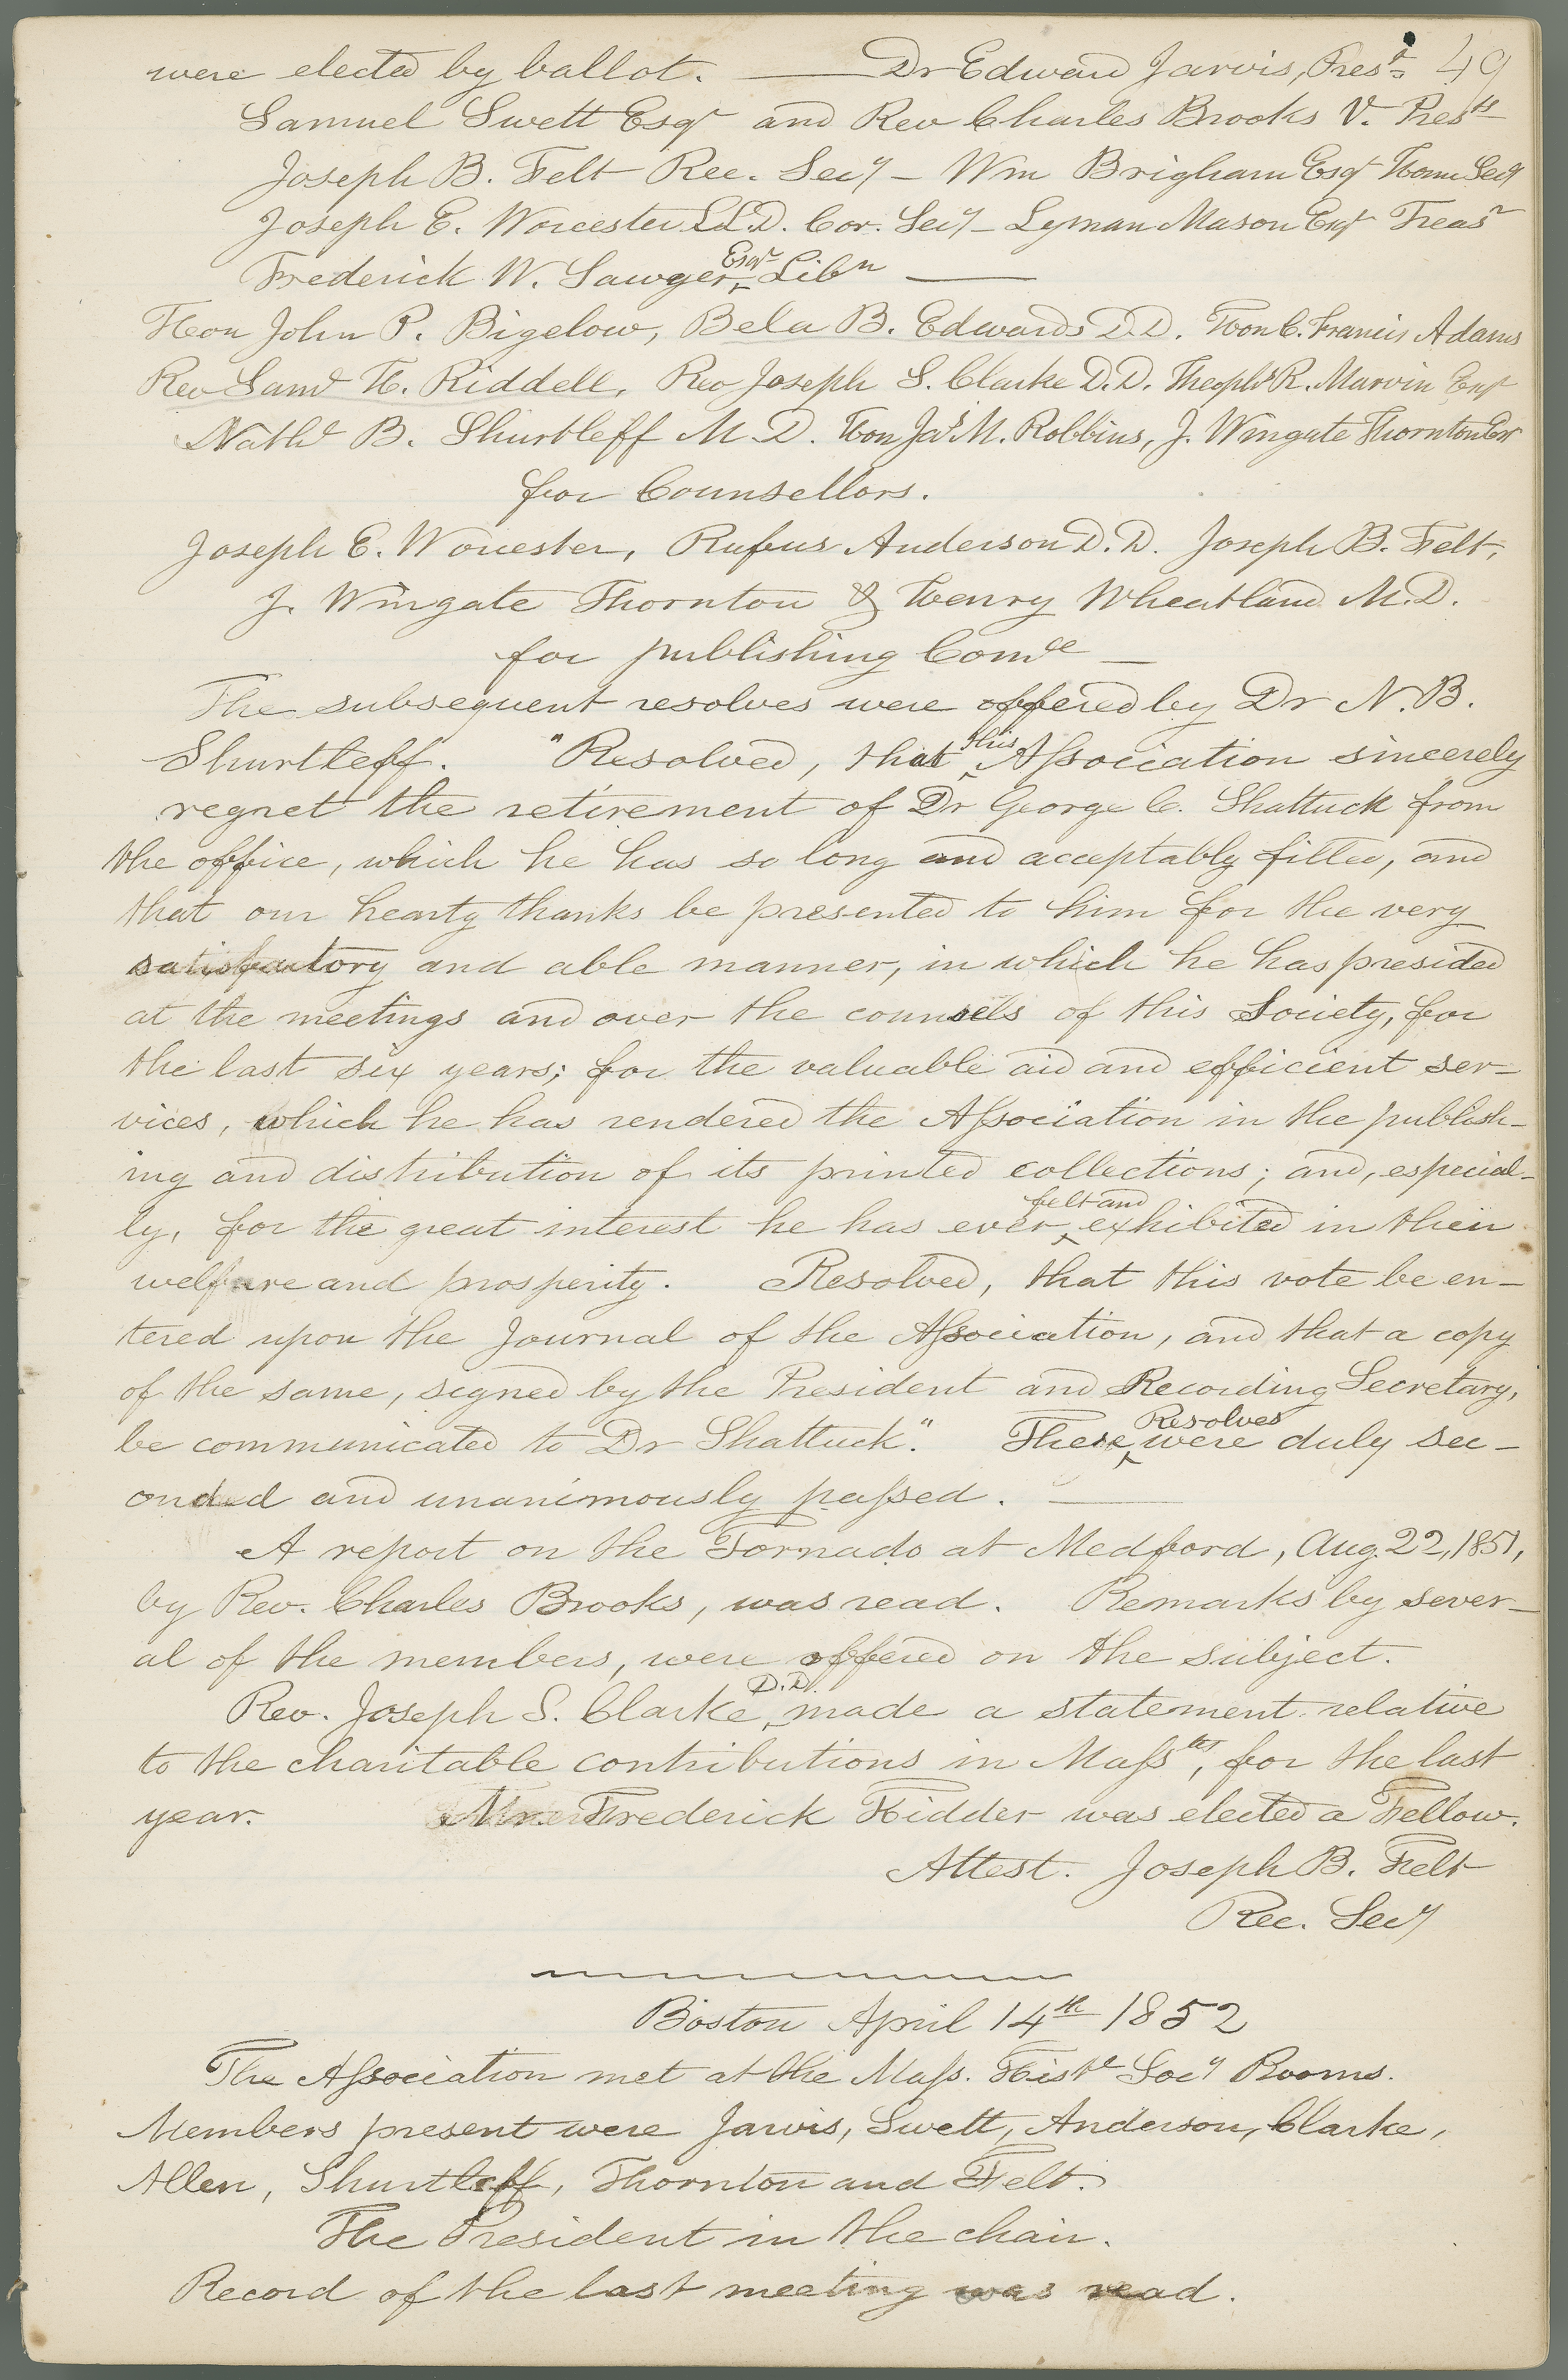 were elected by ballot. — Dr Edward Jarvis, Prest. 49
Samuel Swett Esqr and Rev Charles Brooks V. Prests
Joseph B. Felt Rec. Secy – Wm Brigham Esqr Home Secy
Joseph E. Worcester LL.D. Cor. Secy – Lyman Mason Esqr Treasr
Frederick W. Sawyer, Esqr Libn —
Hon John P. Bigelow, Bela B. Edwards D.D. Hon C. Francis Adams
Rev Saml H. Riddell, Rev Joseph S. Clarke D.D. Theophs R. Marvin Esqr
Nathl B. Shurtleff M.D. Hon Jas M. Robbins, J. Wingate Thornton Esr
for Counsellors.
Joseph E. Worcester, Rufus Anderson D.D. Joseph B. Felt,
J. Wingate Thornton & Henry Wheatland M.D.
for publishing Comee —
The subsequent resolves were offered by Dr N. B.
Shurtleff. "Resolved, that this Association sincerely
regret the retirement of Dr George C. Shattuck from
the office, which he has so long and acceptably filled, and
that our hearty thanks be presented to him for the very
satisfactory and able manner, in which he has presided
at the meetings and over the counsels of this Society, for
the last six years; for the valuable aid and efficient ser-
vices, which he has rendered the Association in the publish-
ing and distribution of its printed collections; and, especial-
ly, for the great interest he has ever felt and exhibited in their
welfare and prosperity. Resolved, that this vote be en-
tered upon the Journal of the Association, and that a copy
of the same, signed by the President and Recording Secretary,
be communicated to Dr Shattuck." These Resolves were duly sec-
onded and unanimously passed. —
A report on the Tornado at Medford, Aug. 22, 1851,
by Rev. Charles Brooks, was read. Remarks by sever-
al of the members, were offered on the subject.
Rev. Joseph S. Clarke, D.D. made a statement relative
to the charitable contributions in Massts, for the last
year. Mr. Frederick Kidder was elected a Fellow.
Attest. Joseph B. Felt
Rec. Secy
Boston April 14th 1852
The Association met at the Mass. Histl Socy Rooms.
Members present were Jarvis, Swett, Anderson, Clarke,
Allen, Shurtleff, Thornton and Felt.
The President in the chair.
Record of the last meeting was read.